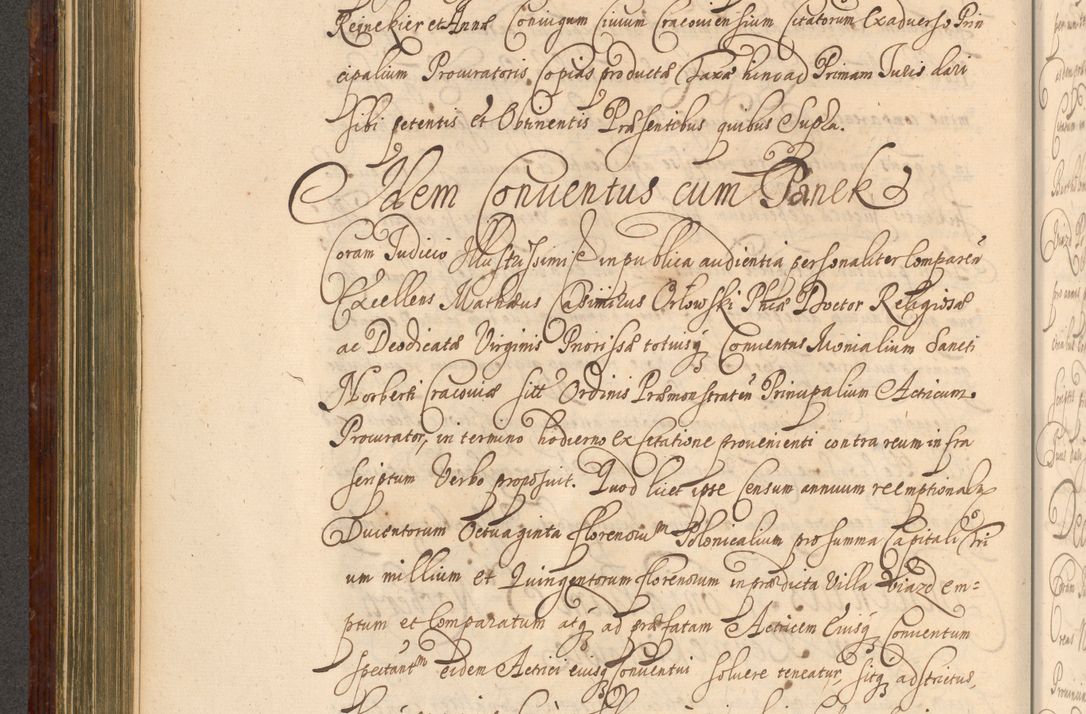 Rejnekier et Annæ Coniugum Civium Cracoviensium Citatorum Exadverso Prin
cipalium Procuratoris Copias productæ Taxæ hinc ad Primam Juris dari
sibi petentis et Obtinentis Præsentibus quibus Supra.
Idem Conventus cum Panek
Coram Judicio Illustrissimi in publica audientia personaliter Comparen
Excellens Mathæus Casimirus Orłowski Phiæ Doctor Religiosæ
ac Deodicatæ Virginis Priorissæ totiusq Conventus Monialium Sancti
Norberti Cracoviæ sitt Ordinis Præmonstraten Principalium Actricum
Procurator, in termino hodierno ex Citatione provenienti contra reum infra
scriptum Verbo proposuit. Quod licet ipse Censum annuum reemptionalem
Ducentorum Octuaginta florenorum Polonicalium pro summa Capitali Tri
um millium et Quingentorum florenorum in prædicta Villa Viazd em=
ptum et Comparatum atq ad præfatam Actricem Eiusq Conventum
spectantm eidem Actrici eiusq Conventui solvere teneatur, sitq adstrictus,